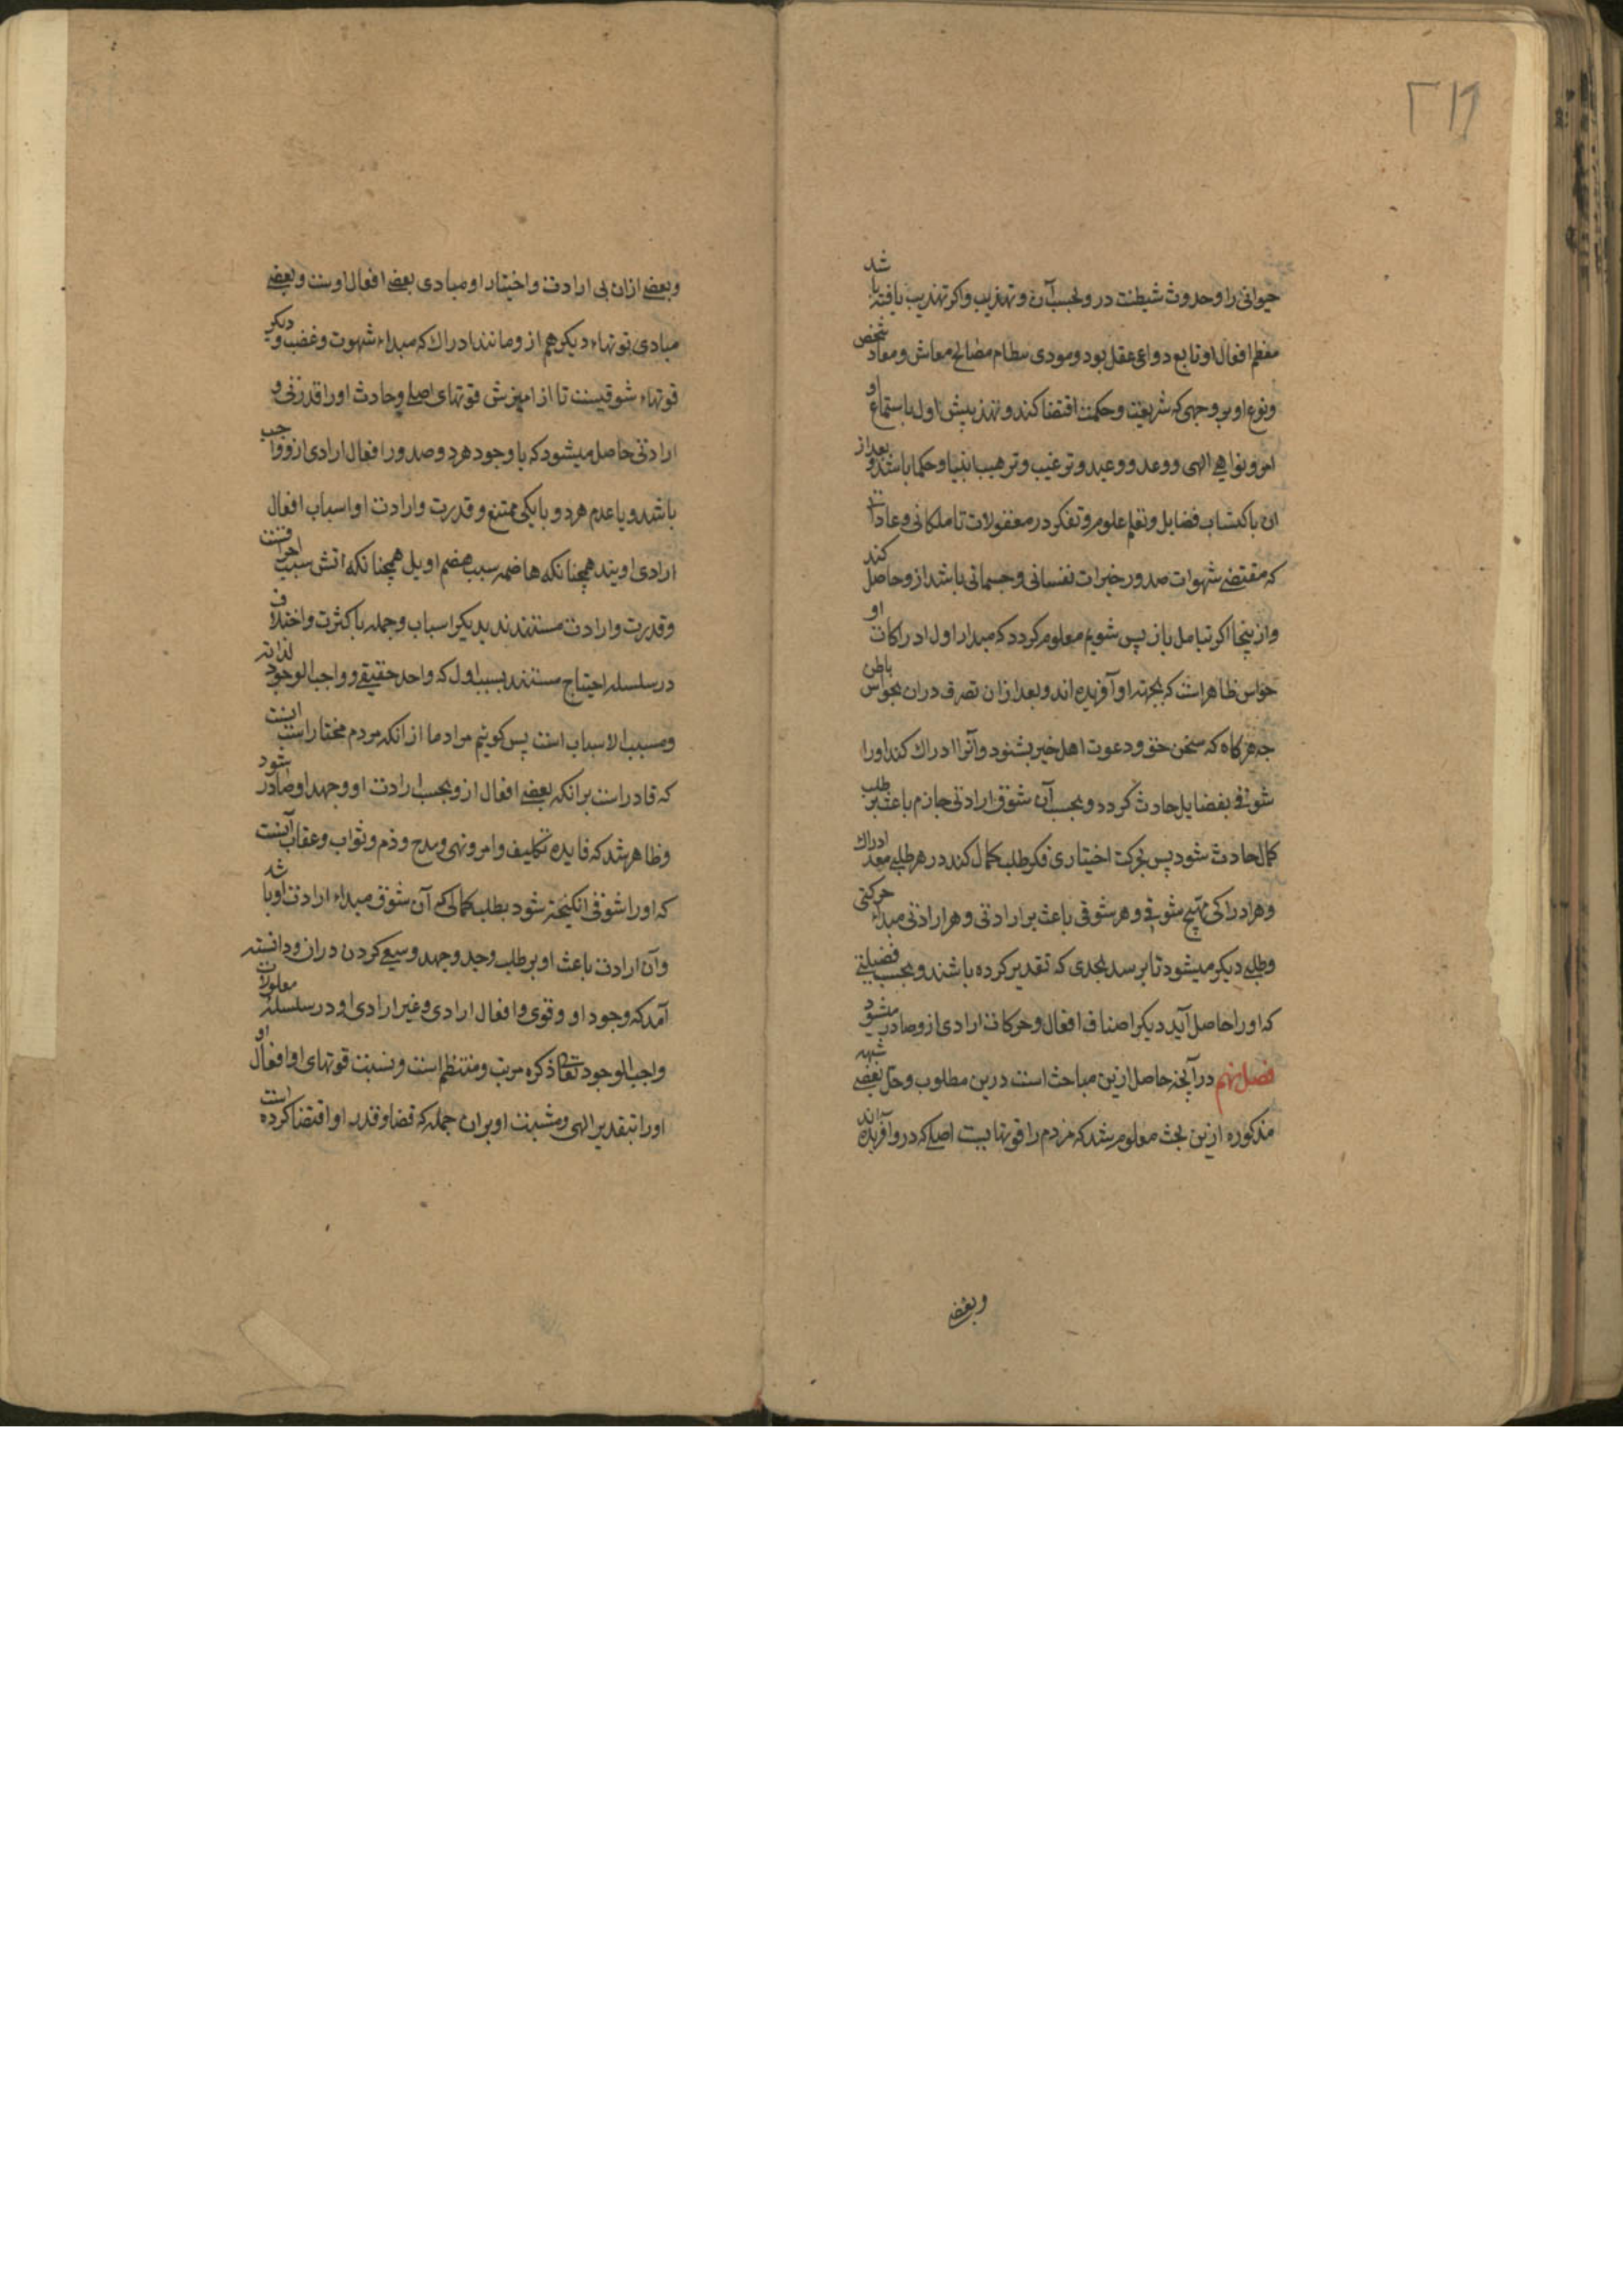 ۲۱۹
حیوانی را و حدوث شیطنت درو بحسب آن و تهذیب و اکر تهذیب یافته باشد
معظم افعال او تابع دواعی عقل بود و مودی بنظام مصالح معاش و معاد شخص
و نوع او بر وجهی که شریعت و حکمت اقتضا کند و تهذیبش اول باستماع او
امر و نواهی الهی و وعد و وعید و ترغیب و ترهیب انبیا و حکما باشد و بعد از
ان باکتساب فضایل و تعلم علوم و تفکر در معقولات تا ملکاتی و عاداتی
که مقتضی شهوات صدور خیرات نفسانی و جسمانی باشد ازو حاصل کند
و ازینجا اکر بتامل باز پس شویم معلوم کردد که مبدا اول ادراکات او
حواس ظاهر است که بجهته او آفریده اند و بعد ازان تصرف دران بحواس باطن
چه هرکاه که سخن حق و دعوت اهل خیر بشنود و آنرا ادراک کند او را
شوقی بفضایل حادث کردد و بحسب آن شوق ارادتی جازم باعث بر طلب
کمال حادث شود پس بحرکت اختیاری فکر طلب کمال کند در هر طلبی معد ادراک
و هر ادراکی مهیج شوقی و هر شوقی باعث بر ارادتی و هر ارادتی مبداء حرکتی
و طلبی دیکر میشود تا برسد بحدی که تقدیر کرده باشند و بحسب فضیلتی
که او را حاصل آید دیکر اصناف افعال و حرکات ارادی ازو صادر میشود
فصل نهم در آنچه حاصل ازین مباحث است درین مطلوب و حل بعضی شبهه
مذکوره ازین بحث معلوم شد که مردم را قوتهاییست اصلی که درو آفریده اند
و بعضی
و بعضی ازان بی ارادت و اختیار او مبادی بعضی افعال اوست و بعضی
مبادی قوتهاء دیکر هم ازو مانند ادراک که مبداء شهوت و غضب و دیکر
قوتهاء شوقیست تا از امیزش قوتهای اصلی و حادث او را قدرتی و
ارادتی حاصل میشود که با وجود هردو صدور افعال ارادی ازو واجب
باشد و با عدم هردو یا یکی ممتنع و قدرت و ارادت او اسباب افعال
ارادی اویند همچنانکه هاضمه سبب هضم او بل همچنانکه اتش سبب احراقست
و قدرت و ارادت مستندند بدیکر اسباب و جمله با کثرت و اختلاف
در سلسله احتیاج مستند بسبب اول که واحد حقیقی و واجب الوجود لذاته
و مسبب الاسباب است پس کوییم مراد ما از انکه مردم مختار است اینست
که قادر است بر انکه بعضی افعال ازو بحسب ارادت او و جهد او صادر شود
و ظاهر شد که فایده تکلیف و امر و نهی و مدح و ذم و ثواب و عقاب آنست
که او را شوقی انکیخته شود بطلب کمالی که آن شوق مبداء ارادت او باشد
و آن ارادت باعث او بر طلب و جد و جهد و سعی کردن دران و دانسته
آمد که وجود او و قوی و افعال ارادی و غیر ارادی او در سلسلهٔ معلولات
واجب الوجود تعالی ذکره مرتب و منتظم است و نسبت قوتهای او و افعال او
او را بتقدیر الهی و مشیت او بران جمله که قضا و قدر او اقتضا کرده است